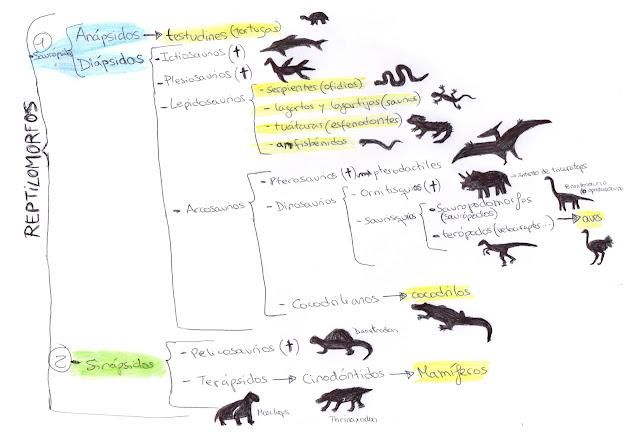 REPTILOMORFOS
1
- Saurópsidos
Anápsidos → testudines (tortugas)
Diápsidos
- Ictiosaurios (†)
- Plesiosaurios (†)
- Lepidosaurios
- serpientes (ofidios)
- lagartos y lagartijas (saurios)
- tuátaras (esfenodontes)
- anfisbénidos
- Arcosaurios
- Pterosaurios (†) → pterodáctiles
- Dinosaurios
- Ornitisquios (†)
- Saurisquios
• Sauropodomorfos
(saurópodos)
Brontosaurio
• terópodos (velociraptor...) → aves
- Cocodrilianos → cocodrilos
2
- Sinápsidos
- Pelicosaurios (†)
Dimetrodon
- Terápsidos → Cinodóntidos → Mamíferos
Moschops
Thrinaxodon